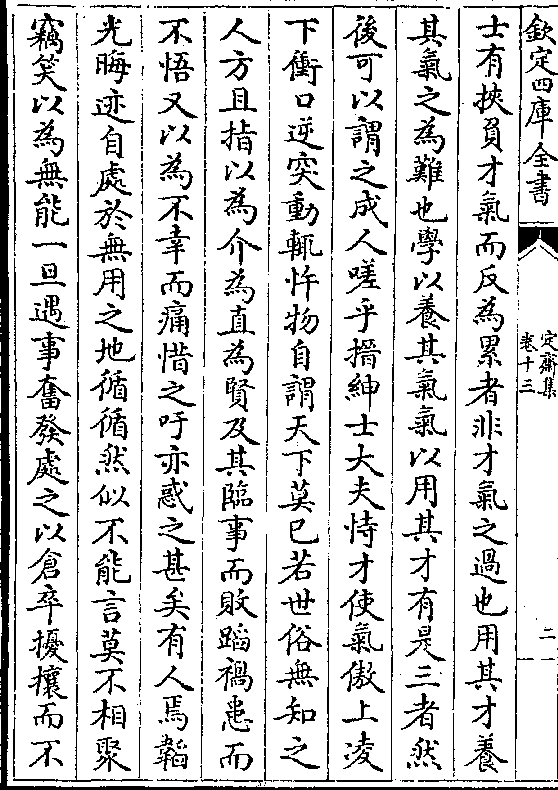 欽定四庫全書
定齋集
卷十三
二
士有挾負才氣而反為累者非才氣之過也用其才養
其氣之為難也學以養其氣氣以用其才有是三者然
後可以謂之成人嗟乎搢紳士大夫恃才使氣傲上凌
下衝口逆突動輒忤物自謂天下莫已若世俗無知之
人方且指以為介為直為賢及其臨事而敗蹈禍患而
不悟又以為不幸而痛惜之吁亦惑之甚矣有人焉韜
光晦迹自處於無用之地循循然似不能言莫不相聚
竊笑以為無能一旦遇事奮發處之以倉卒擾攘而不